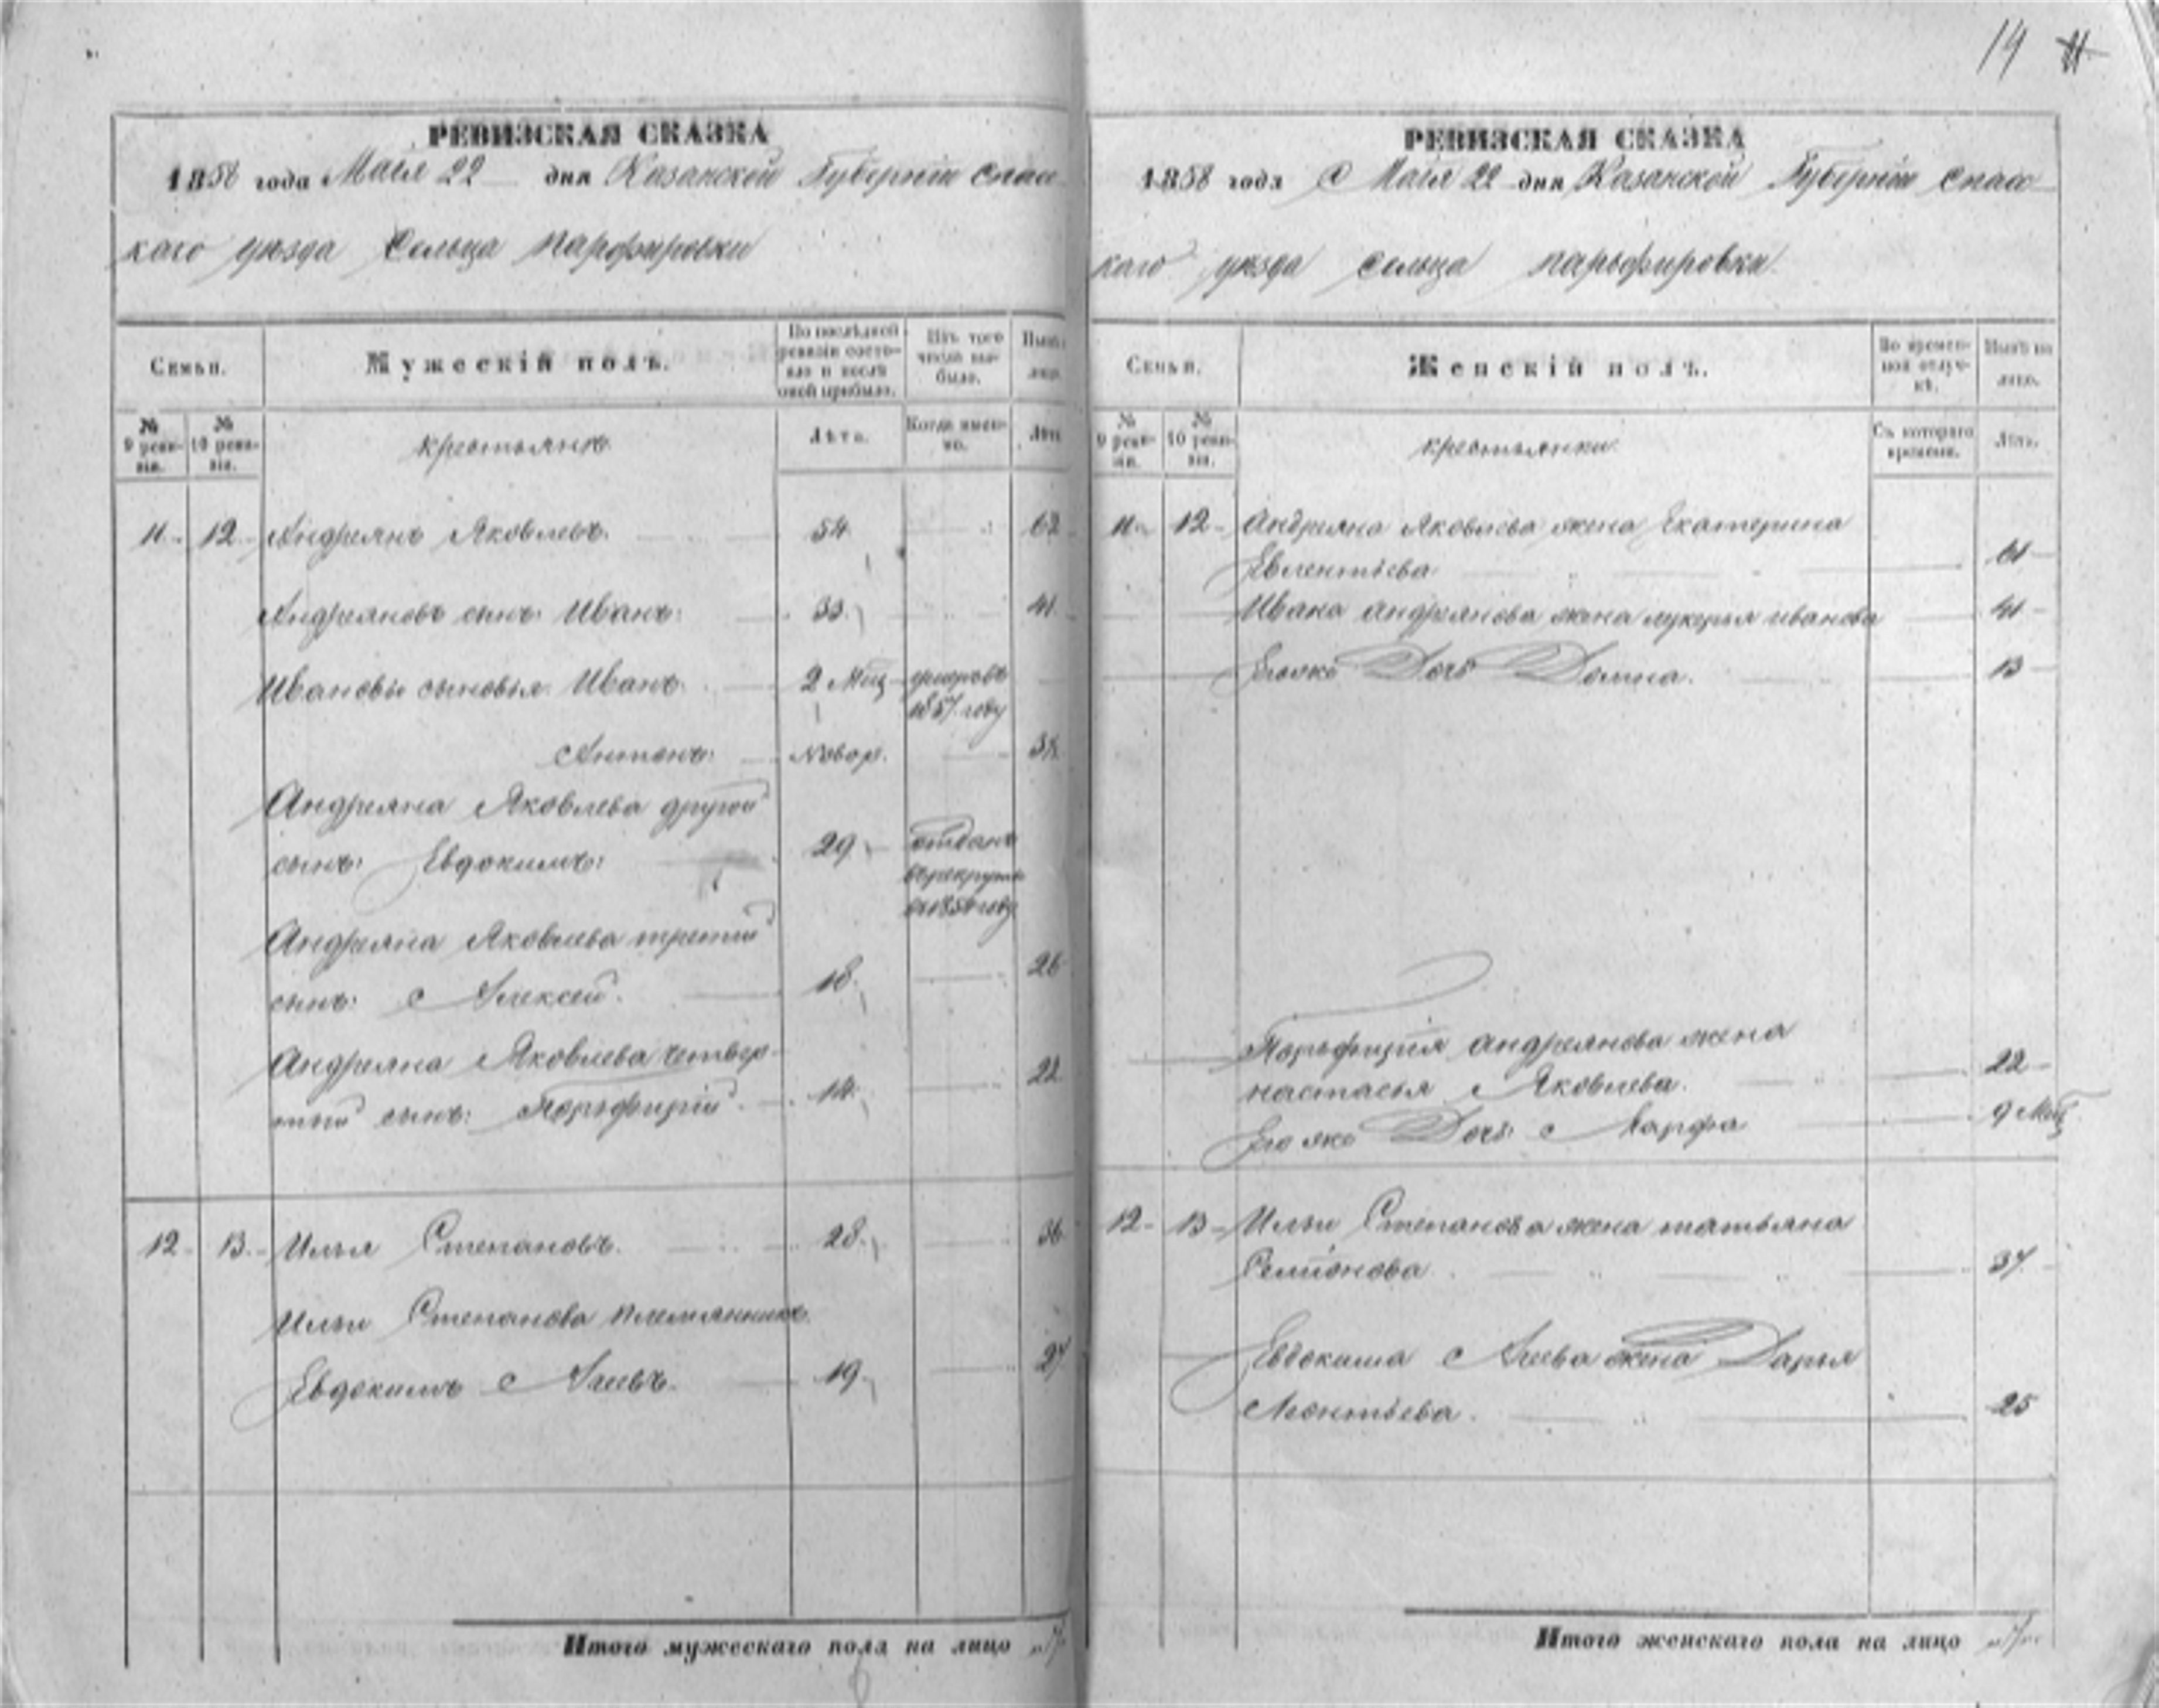 14 11
РЕВИЗСКАЯ СКАЗКА
1858 года Маія 22 дня Казанской Губерніи Спас
каго уезда Сельца Парфировки
Семьи.
Мужескій полъ.
По послѣдней ревизіи состояло и послѣ оной прибыло.
Изъ того числа выбыло.
Нынѣ
лицо.
№ 9 ревизіи.
№ 10 ревизіи.
крестьянъ
Лѣта.
Когда именно.
Лѣта
11 12 Андреянъ Яковлевъ. 54 62
Андреяновъ сынъ: Иванъ: 33 41
Ивановы сыновья Иванъ. 2 Мѣц умеръ въ
1857 году
Антонъ: Новор.
Андреяна Яковлева другой
сынъ: Евдокимъ: 29 отданъ
въ рекруты
Андреяна Яковлева третий
сынъ: Алексей. 18 26
Андреяна Яковлева четвер
тый сынъ: Порьфирій. 14 22
12 13 Илья Степановъ. 28 36
Ильи Степанова племянникъ
Евдокимъ Агеевъ. 19 27
Итого мужескаго пола на лицо 7
РЕВИЗСКАЯ СКАЗКА
1858 года Маія 22 дня Казанской Губерніи Спас
каго уезда сельца парьфировки
Семьи.
Женскій полъ.
Во временной отлучкѣ.
Нынѣ на лицо.
№ 9 ревизіи.
№ 10 ревизіи.
крестьянки
Съ котораго времени.
Лѣта.
11 12 Андреяна Яковлева жена Екатерина
Евлентьева 61
Ивана андреянова жена лукерья иванова 41
Егожъ Дочь Домна. 13
Порьфирія андреянова жена
настасья Яковлева. 22
Его же Дочь Марфа 9 Мѣц
12 13 Ильи Степанова жена татьяна
Семионова 37
Евдокима Агеева жена Дарья
Леонтьева. 25
Итого женскаго пола на лицо 7